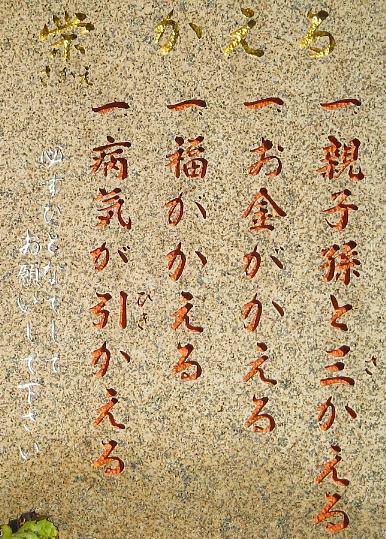 栄 かえる
一親子孫と三かえる
さ
一お金がかえる
一福がかえる
一病気が引かえる
ひき
必ずひとなでして
お願いして下さい